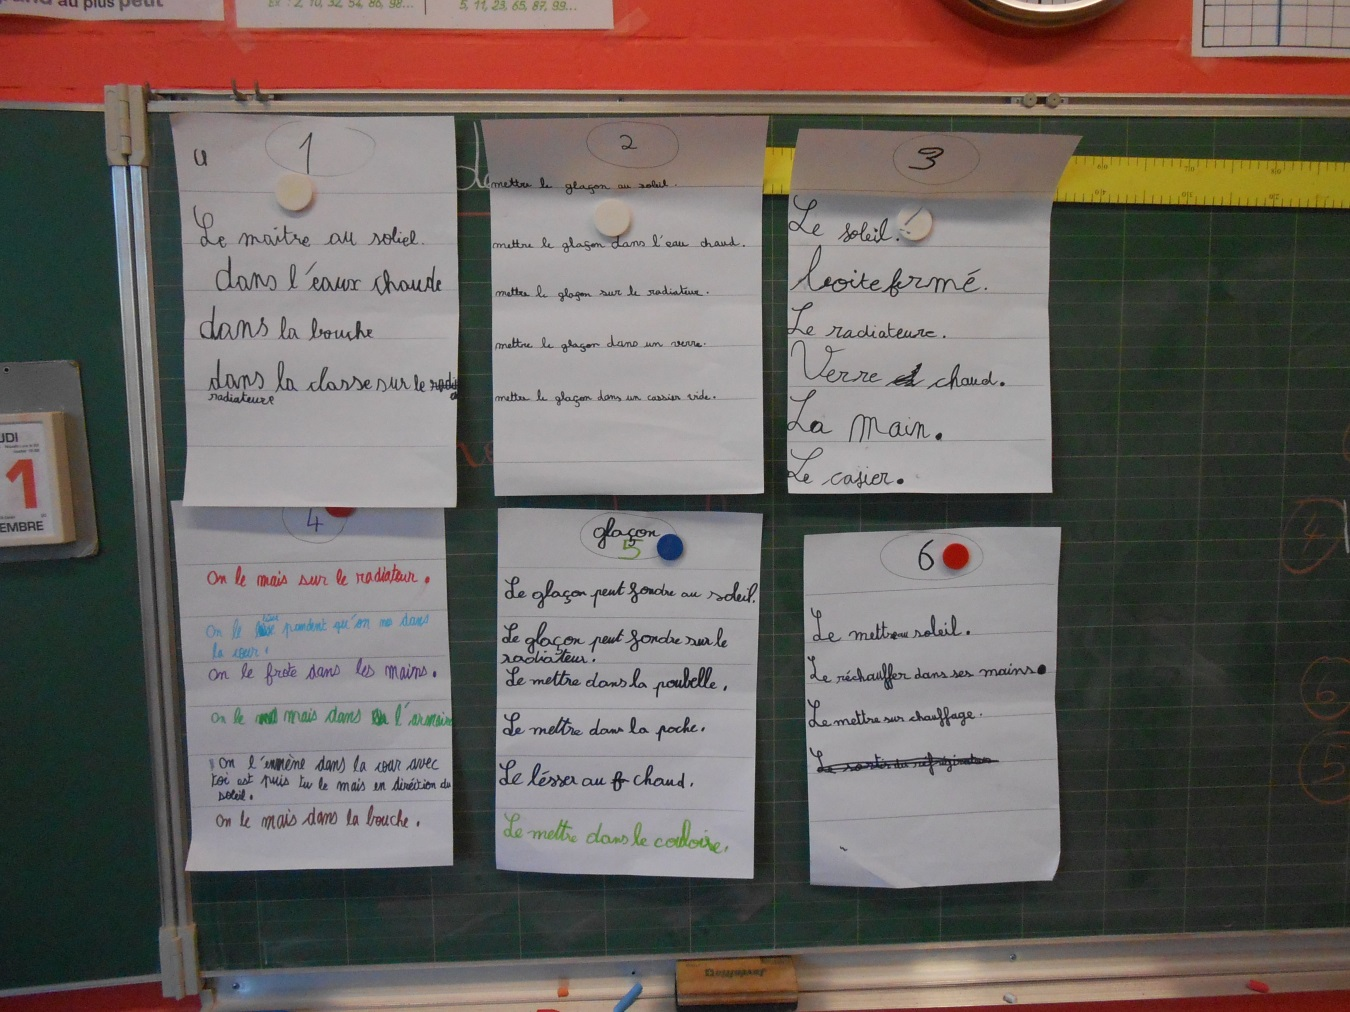 au plus peut
Ex : 2, 10, 32, 54, 86, 98...
5, 11, 23, 65, 87, 99...
1
u
Le maitre au soliel.
dans l'eaux chaude
dans la bouche
dans la classe sur le
radiateure
2
mettre le glaçon au soleil.
mettre le glaçon dans l'eau chaud.
mettre le glaçon sur le radiateur.
mettre le glaçon dans un verre.
mettre le glaçon dans un cassier vide.
3
Le soleil.
boite fermé.
Le radiateure.
Verre chaud.
La main.
Le casier.
UDI
1
EMBRE
4
On le mais sur le radiateur.
On le pendent qu'on va dans
la cour.
On le frote dans les mains.
On le mais dans l'armoire
On l'emmène dans la cour avec
toi est puis tu le mais en diréction du
soleil.
On le mais dans la bouche.
glaçon
5
Le glaçon peut fondre au soleil.
Le glaçon peut fondre sur le
radiateur.
Le mettre dans la poubelle.
Le mettre dans la poche.
Le lésser au chaud.
Le mettre dans le couloire.
6
Le mettre au soleil.
Le réchauffer dans ses mains.
Le mettre sur chauffage.
4
6
5